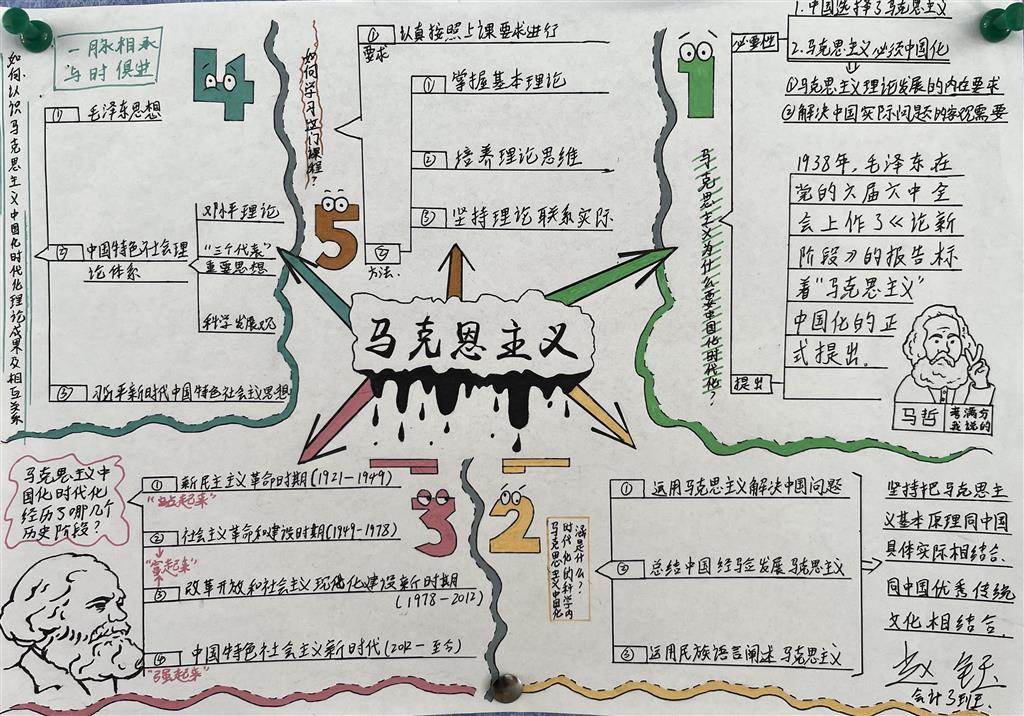 马克思主义
1
马克思主义为什么要中国化时代化？
必要性
1.中国选择了马克思主义
2.马克思主义必须中国化
①马克思主义理论发展的内在要求
②解决中国实际问题的客观需要
提出
1938年,毛泽东在
党的六届六中全
会上作了《论新
阶段》的报告标
着“马克思主义”
中国化的正
式提出.
马哲
考满分
我说的
2
马克思主义中国化
时代化的科学内
涵是什么？
① 运用马克思主义解决中国问题
② 总结中国经验发展马克思主义
③ 运用民族语言阐述马克思主义
坚持把马克思主
义基本原理同中国
具体实际相结合.
同中国优秀传统
文化相结合.
会计3班.
3
马克思主义中
国化时代化
经历了哪几个
历史阶段？
① 新民主主义革命时期(1921-1949)
“站起来”
② 社会主义革命和建设时期(1949-1978)
“富起来”
③ 改革开放和社会主义现代化建设新时期
(1978-2012)
④ 中国特色社会主义新时代(2012-至今)
“强起来”
4
一脉相承
与时俱进
如何认识马克思主义中国化时代化理论成果及相互关系
① 毛泽东思想
② 中国特色社会理
论体系
邓小平理论
“三个代表”
重要思想
科学发展观
③ 习近平新时代中国特色社会主义思想
5
如何学习这门课程？
① 认真按照上课要求进行
要求
② 方法.
① 掌握基本理论
② 培养理论思维
③ 坚持理论联系实际